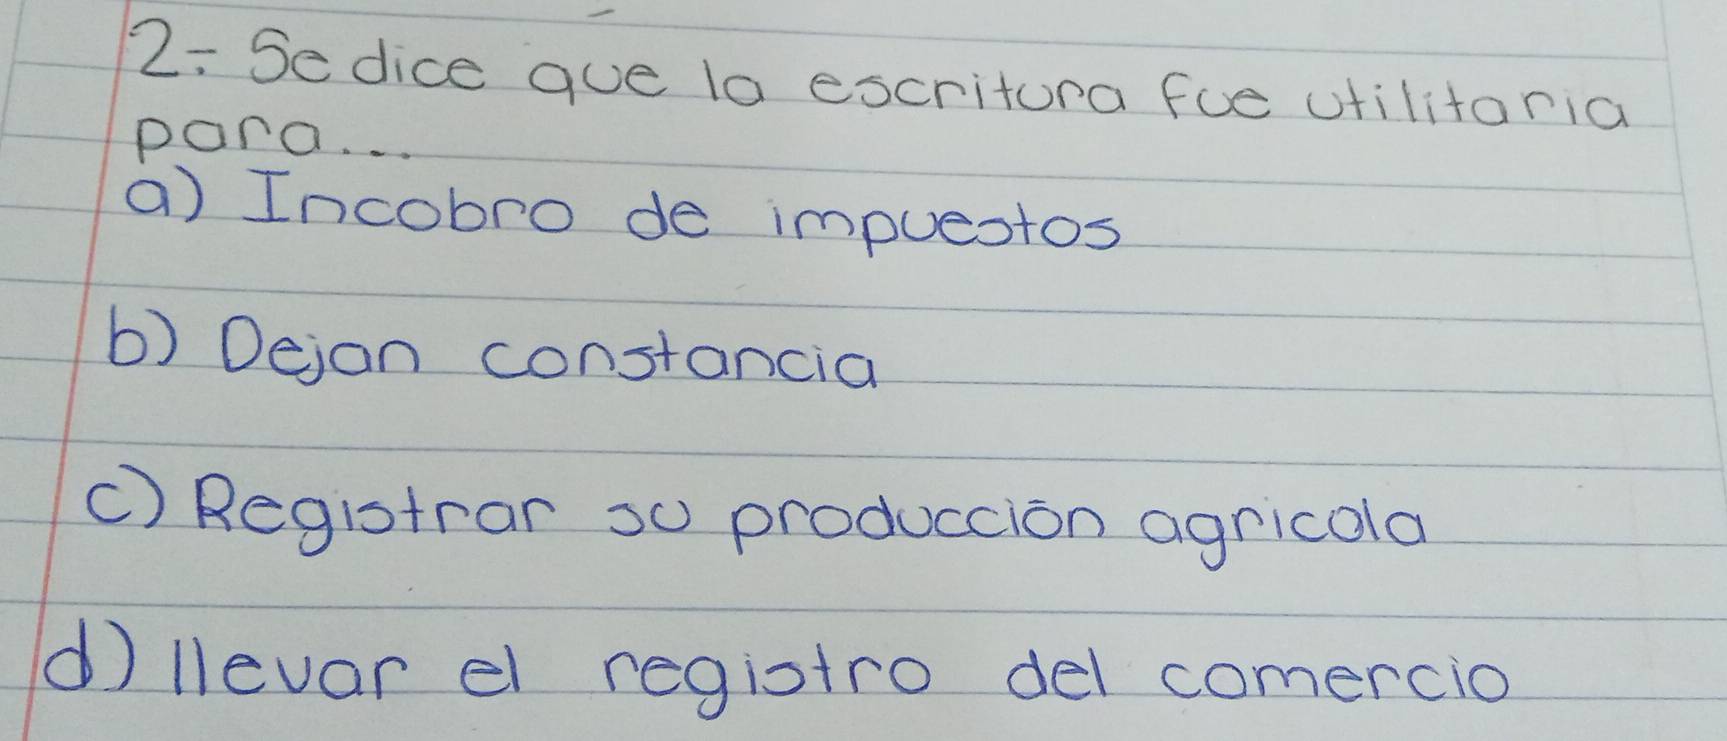 2.- Se dice que la escritura fue utilitaria
para...
a) Incobro de impuestos
b) Dejan constancia
c) Registrar su producción agricola
d) llevar el registro del comercio